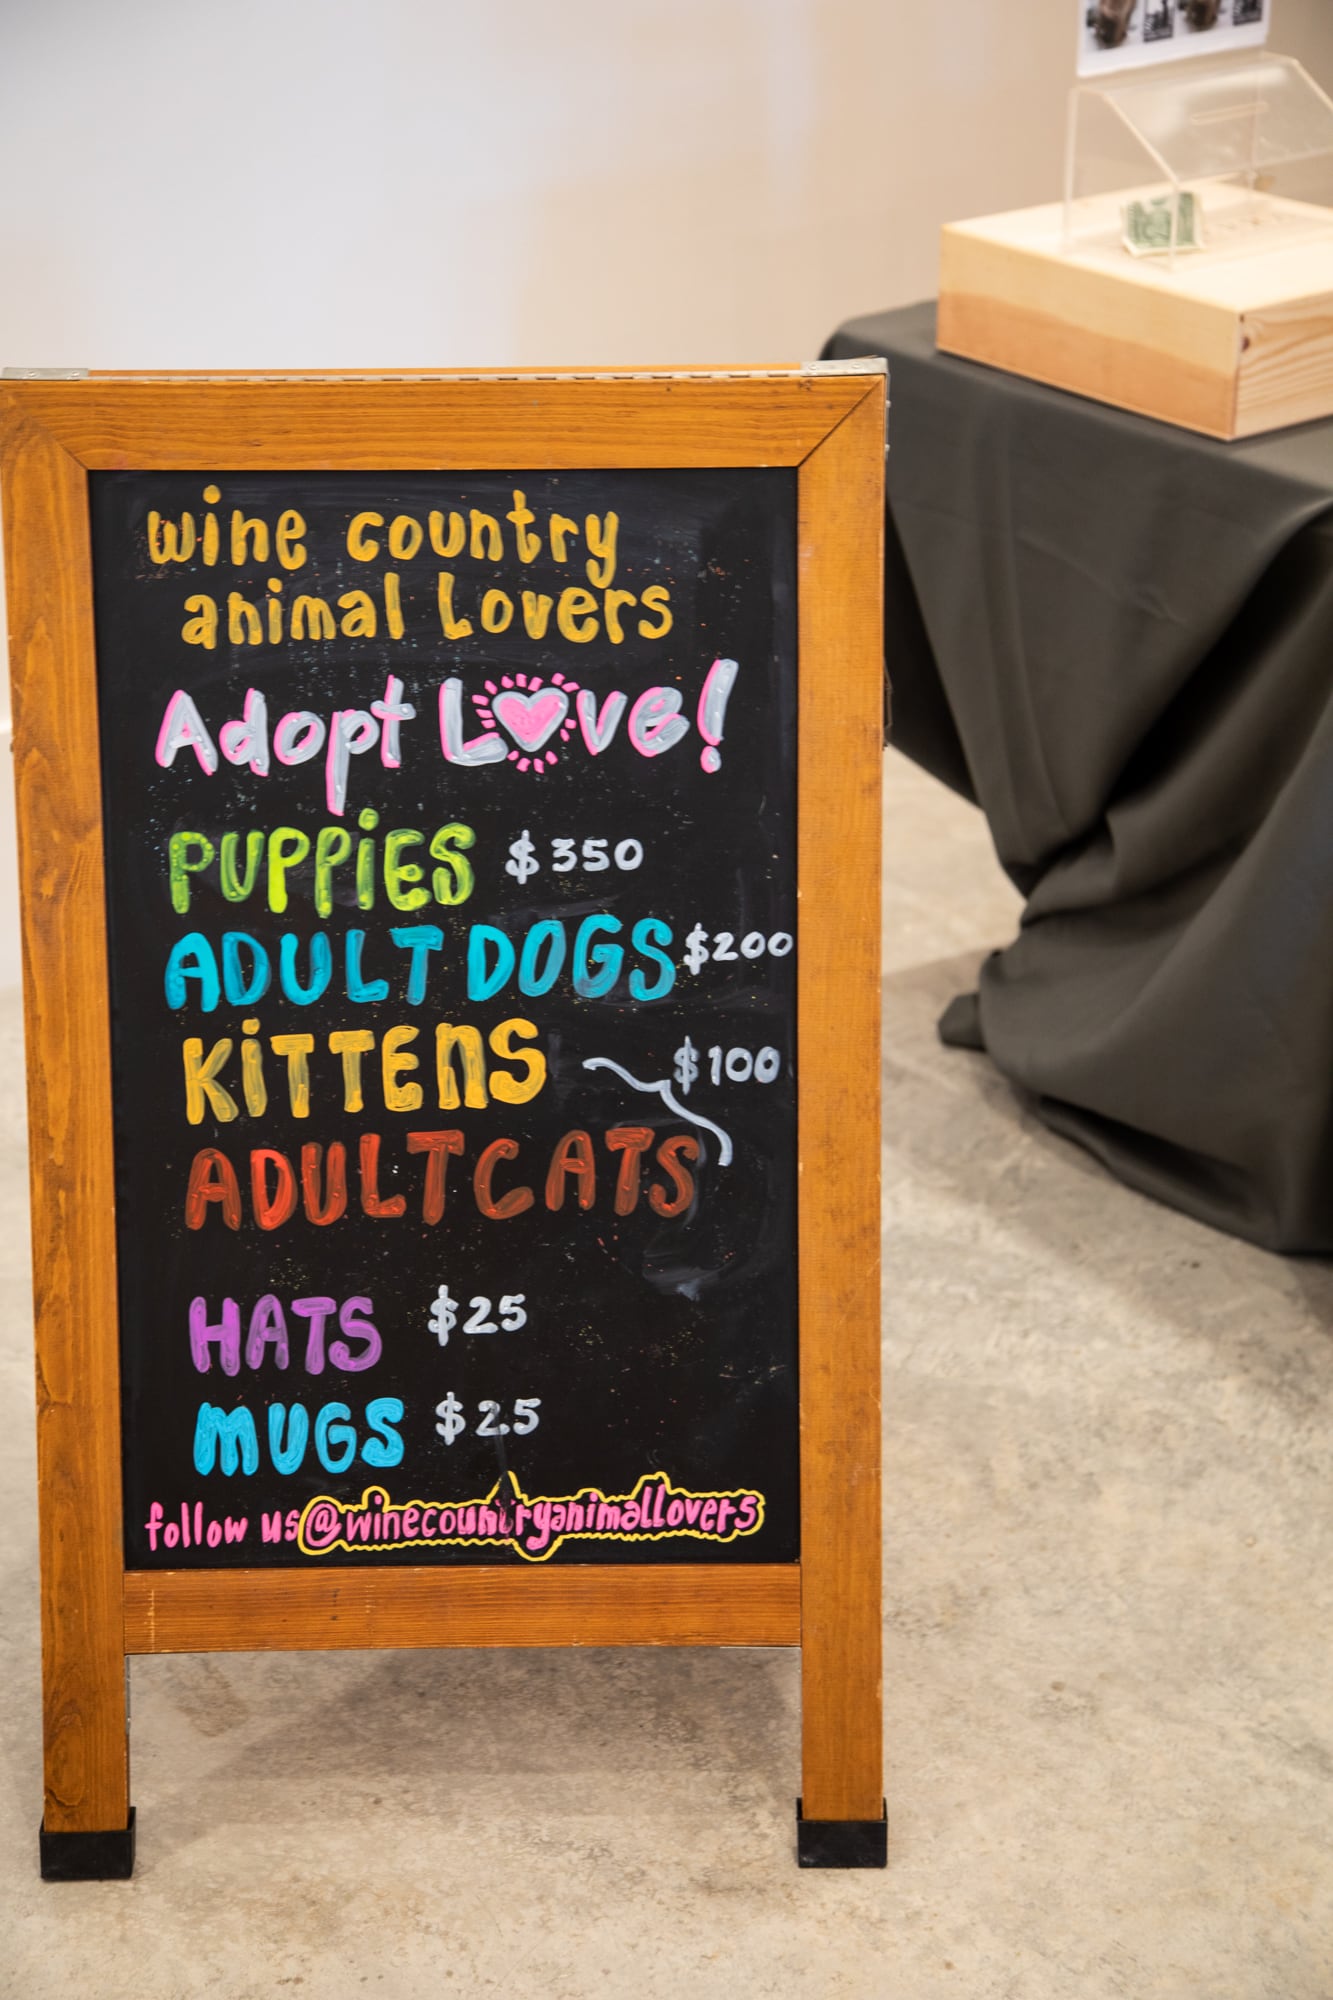 wine country
animal Lovers
Adopt Love!
PUPPiES $350
ADULT DOGS $200
KiTTENS $100
ADULT CATS
HATS $25
MUGS $25
follow us @winecountryanimallovers